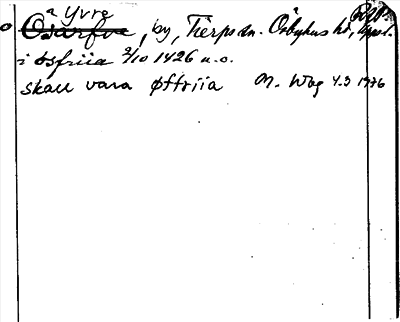 Yvre
Osarfve, by, Tierps sn. Örbyhus hd, Uppl.
i øsfriia 2/10 1426 u.o.
skall vara øffriia M. Wag 4.3 1976